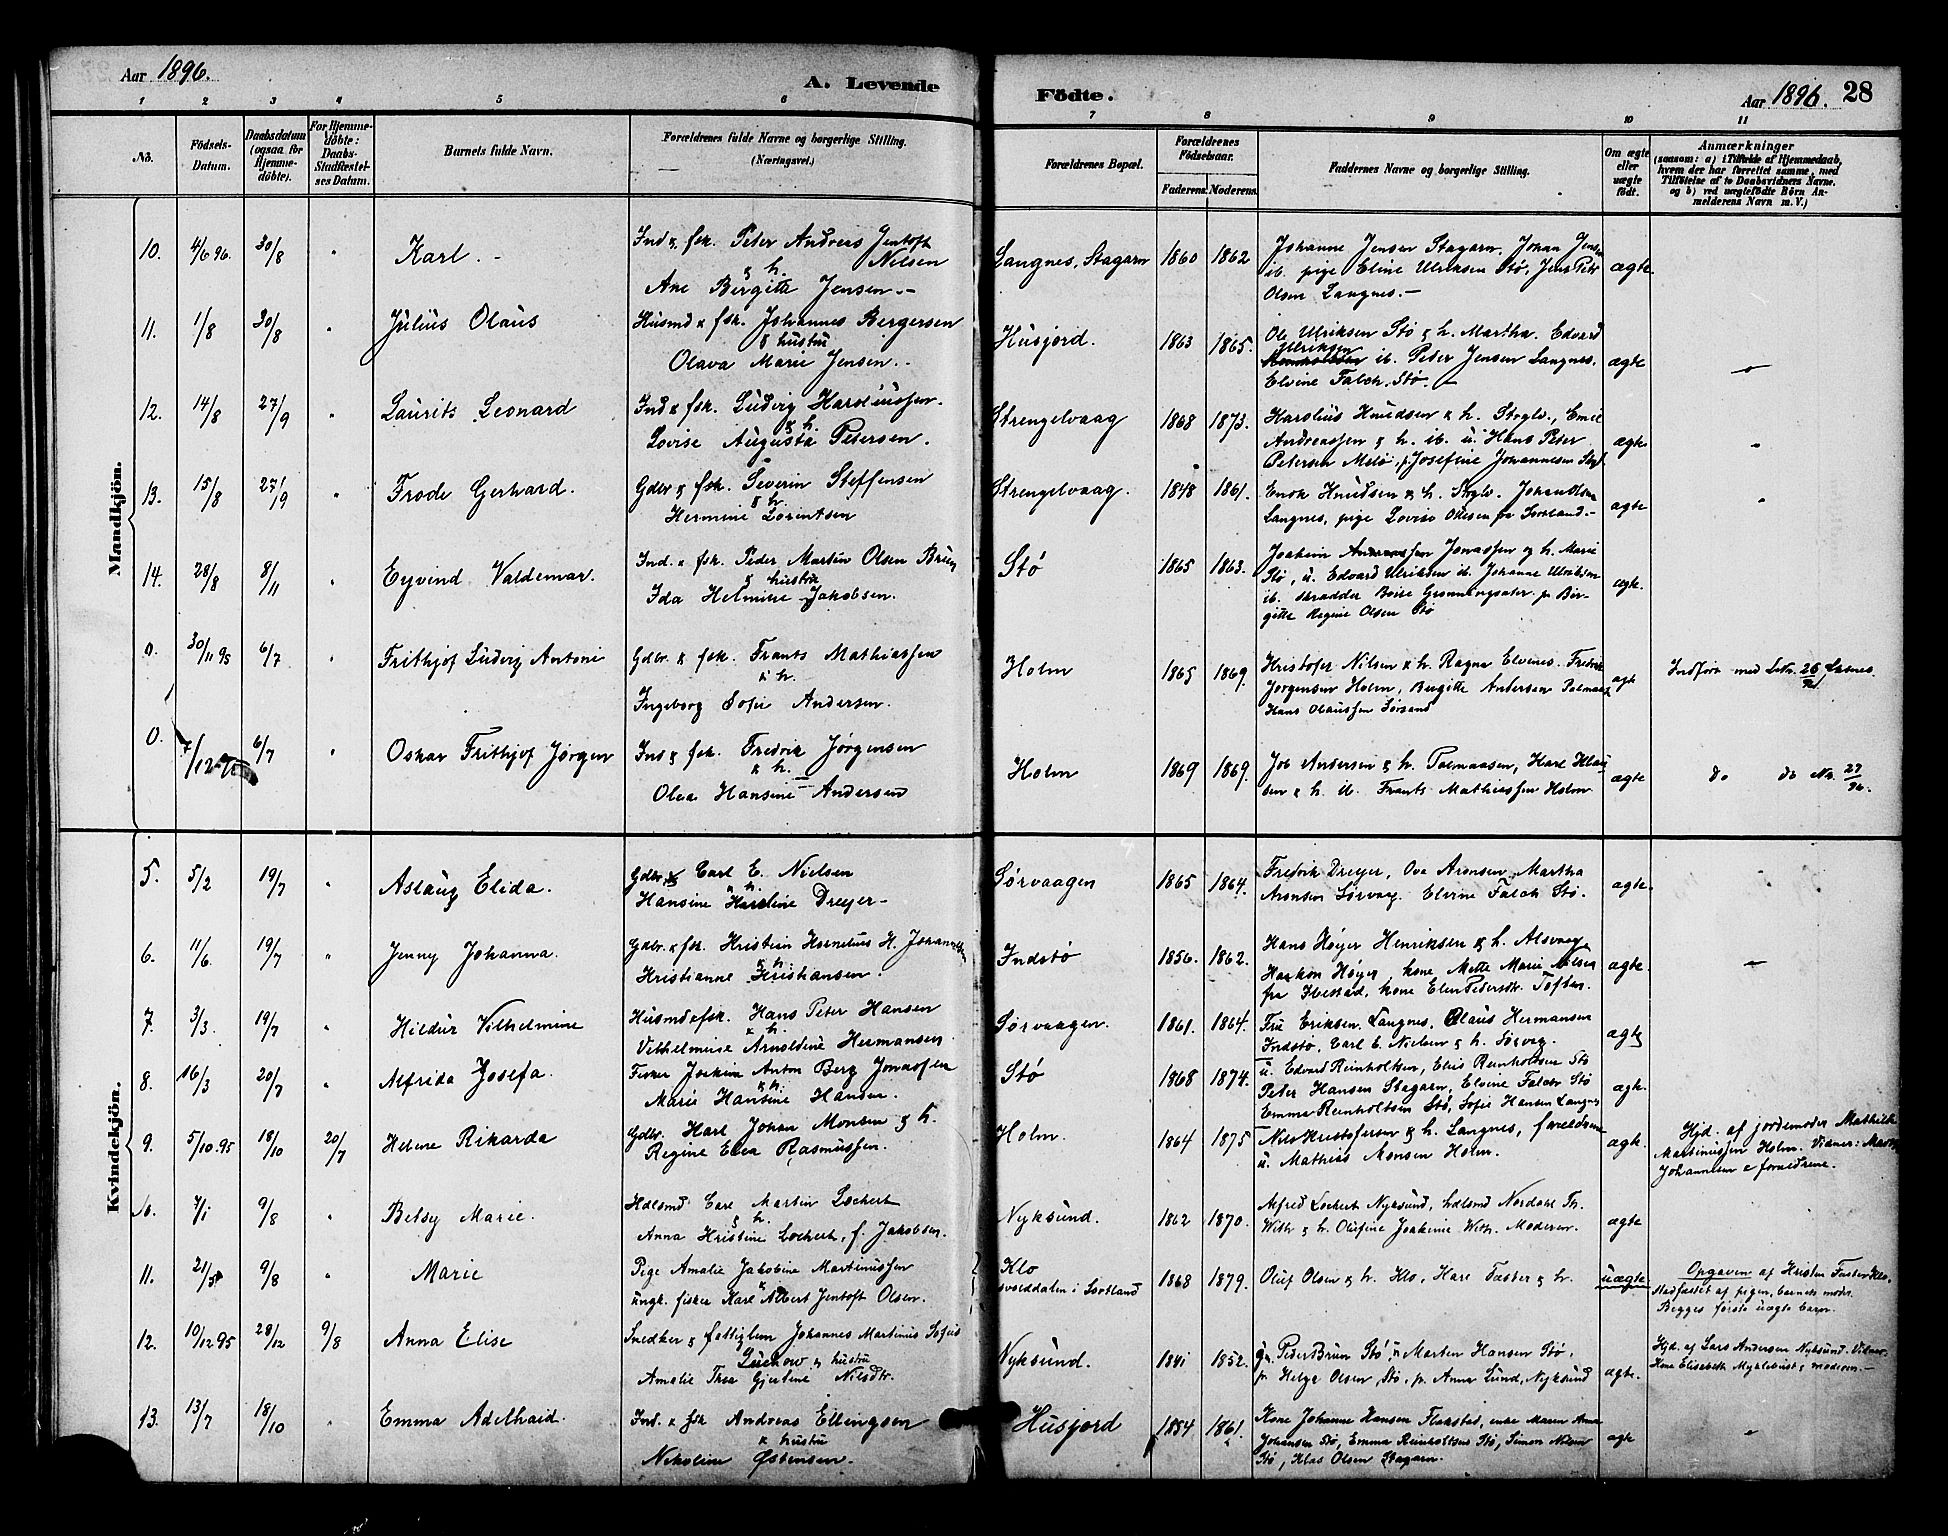 Aar 1896.
A. Levende
Födte.
Aar 1896. 28
1 2 3 4 5 6 7 8 9 10 11
No.
Födsels-Datum.
Daabsdatum (ogsaa for Hjemme-döbte).
For Hjemme-döbte: Daabs-Stadfæstel-ses Datum.
Barnets fulde Navn.
Forældrenes fulde Navne og borgerlige Stilling. (Næringsvei.)
Forældrenes Bopæl.
Forældrenes Födselsaar.
Faderens. Moderens.
Faddernes Navne og borgerlige Stilling.
Om ægte eller uægte födt.
Anmærkninger
(saasom: a) i Tilfælde af Hjemmedaab, hvem der har forrettet samme, med Tilföielse af to Daabsvidners Navne, og b) ved uægtefödte Börn An-melderens Navn m. V.)
Mandkjön.
10. 4/6 96. 30/8 " Karl. - Ind & fsk. Peder Andreas Jentoft Nilsen & h. Ane Bergitte Jensen. - Langnes, Stagarn 1860 1862 Johanne Jensen Stagarn, Johan Jensen ib. pige Eline Ulriksen Stø, Jens Petr Olsen Langnes. - ægte.
11. 1/8 30/8 " Julius Olaus Husmd & fsk. Johannes Bergersen & hustru Olava Marie Jensen. - Husjord. 1863 1865. Ole Ulriksen Stø & h. Martha. Edvard Ulriksen ib. Peder Jensen Langnes. Elvine Falch, Stø. - ægte
12. 14/8 27/9 " Laurits Leonard Ind & fsk. Ludvig Haroliussen. & h. Lovise Augusta Petersen. Strengelvaag 1868 1873. Harolius Knudsen & h. Strglv., Emil Andreassen & h. ib. u. Hans Peter Petersen Melø, p. Josefine Johannesen Strgl. ægte "
13. 15/8 27/9 " Frode Gerhard. Gdbr & fsk. Severin Steffensen & h. Hermine Lorintsen Strengelvaag. 1848 1861. Enok Knudsen & h. Strglv. Johan Olsen Langnes, pige Lovise Ottesen fra Sortland. - ægte "
14. 28/8 8/11 " Eyvind Valdemar. Ind. & fsk. Peder Martin Olsen Brun & hustru Ida Helmine Jakobsen. Stø 1865 1863. Joakim Jonassen og h. Marie Stø, u. Edvard Ulriksen ib. Johanne Ulriksen ib. skrædder Boise Grønningsæter p. Bir-gitte Regine Olsen Stø ægte.
0. 30/11 95 6/7 " Frithjof Ludvig Antoni Gdbr. & fsk. Frants Mathiassen & h. Ingeborg Sofie Andersen. Holm 1865 1869. Kristofer Nilsen & h. Ragna Elvenes. Fredrik Jørgensen Holm, Birgitte Andersen Polmaas Hans Olaussen Sørsand ægte Indført med LNr. 26/96 Lasnes.
0. 7/12 95 6/7 " Oskar Frithjof Jørgen Ind & fsk. Fredrik Jørgensen & h. Olea Hansine Andersen Holm 1869 1869. Job Andersen & h. Polmaasen, Karl Klausen & h. ib. Frants Mathiassen Holm. ægte do do Nr. 27/96.
Kvindekjön.
5. 5/2 19/7 " Aslaug Elida. Gdbr. Carl E. Nielsen & h. Hansine Karoline Dreyer - Sørvaagen 1865 1864. Fredrik Dreyer, Ove Aronsen Martha Aronsen Sørvag. Elvine Falch Stø. ægte. "
6. 11/6 19/7 " Jenny Johanna. Gdbr. & fsk. Kristian Kornelius H. Johannessen & h. Kristianne Kristiansen. Indstø 1856. 1862. Hans Høyer Henriksen & h. Alsvaag. Haakon Høyer, kone Mette Marie Nilsen fra Ibestad, kone Elen Pedersdtr. Toften. ægte.
7. 3/3. 19/7 " Hildur Vilhelmine Husmd & fsk. Hans Peter Hansen & h. Vilhelmine Arnoldine Hermansen. Sørvaagen. 1861. 1864. Fru Eriksen, Langnes, Olaus Hermansen Indstø, Carl E. Nielsen & h. Sørvag. ægte
8. 16/3 20/7 " Alfrida Josefa. Fisker Joakim Anton Berg Jonassen & h. Marie Hansine Hansen. Stø 1868 1874. u. Edvard Reinholtsen, Elis Reinholtsen Stø Peter Hansen Stagarn, Elvine Falch Stø Emma Reinholtsen Stø, Sofie Hansen Langnes ægte.
9. 5/10 95 18/10 20/7 Helene Rikarda Gdbr. Karl Johan Monsen & h. Regine Elea Rasmussen. Holm. 1864 1875 Nils Kristofersen & h. Langnes, forældrene u. Mathias Monsen Holm. ægte. Hjd. af jordemoder Mathilde Martinussen Holm. Vidner: Johannesen & forældrene.
10. 7/1 9/8 " Betsy Marie. Hdlsmd Carl Martin Lochert & h. Anna Kristine Lochert, f. Jakobsen. Nyksund. 1862 1870. Alfred Lochert Nyksund, hdlsmd Nordahl Th. With & h. Olufine Joakimie With. Moderen. ægte
11. 21/5 9/8 " Marie Pige Amalie Jakobine Martinussen & ungk. fisker Karl Albert Jentoft Olsen. Klo svolddalen i Sortland 1868 1879. Oluf Olsen & h. Klo, Hans Faster & h. uægte Opgaven af Kristen Faster Klo. Stadfæstet af pigen, barnets moder. Begges første uægte barn.
12. 10/12 95 28/12 9/8 Anna Elise Snedker & fattiglem Johannes Martinus Sofus Luchow & hustru Amalie Trea Gjertine Nilsdtr. Nyksund. 1841 1852. g. Peder Brun Stø, u. Morten Hansen Stø, p. Helga Olsen, Stø, p. Anna Lund, Nyksund ægte. Hjd. af Lars Andersen Nyksund. Vidner: Kone Elisabeth Myklebust & moderen. -
13. 13/7 18/10 " Emma Adelhaid. Ind. & fsk Andreas Ellingsen & hustru Nikoline Østensen. Husjord 1854 1861. Kone Johanne Hansen Flakstad, enke Maren Anna Johansen Stø, Emma Reinholtsen Stø, Simon Nilsen Stø, Klas Olsen Stagarn. ægte "